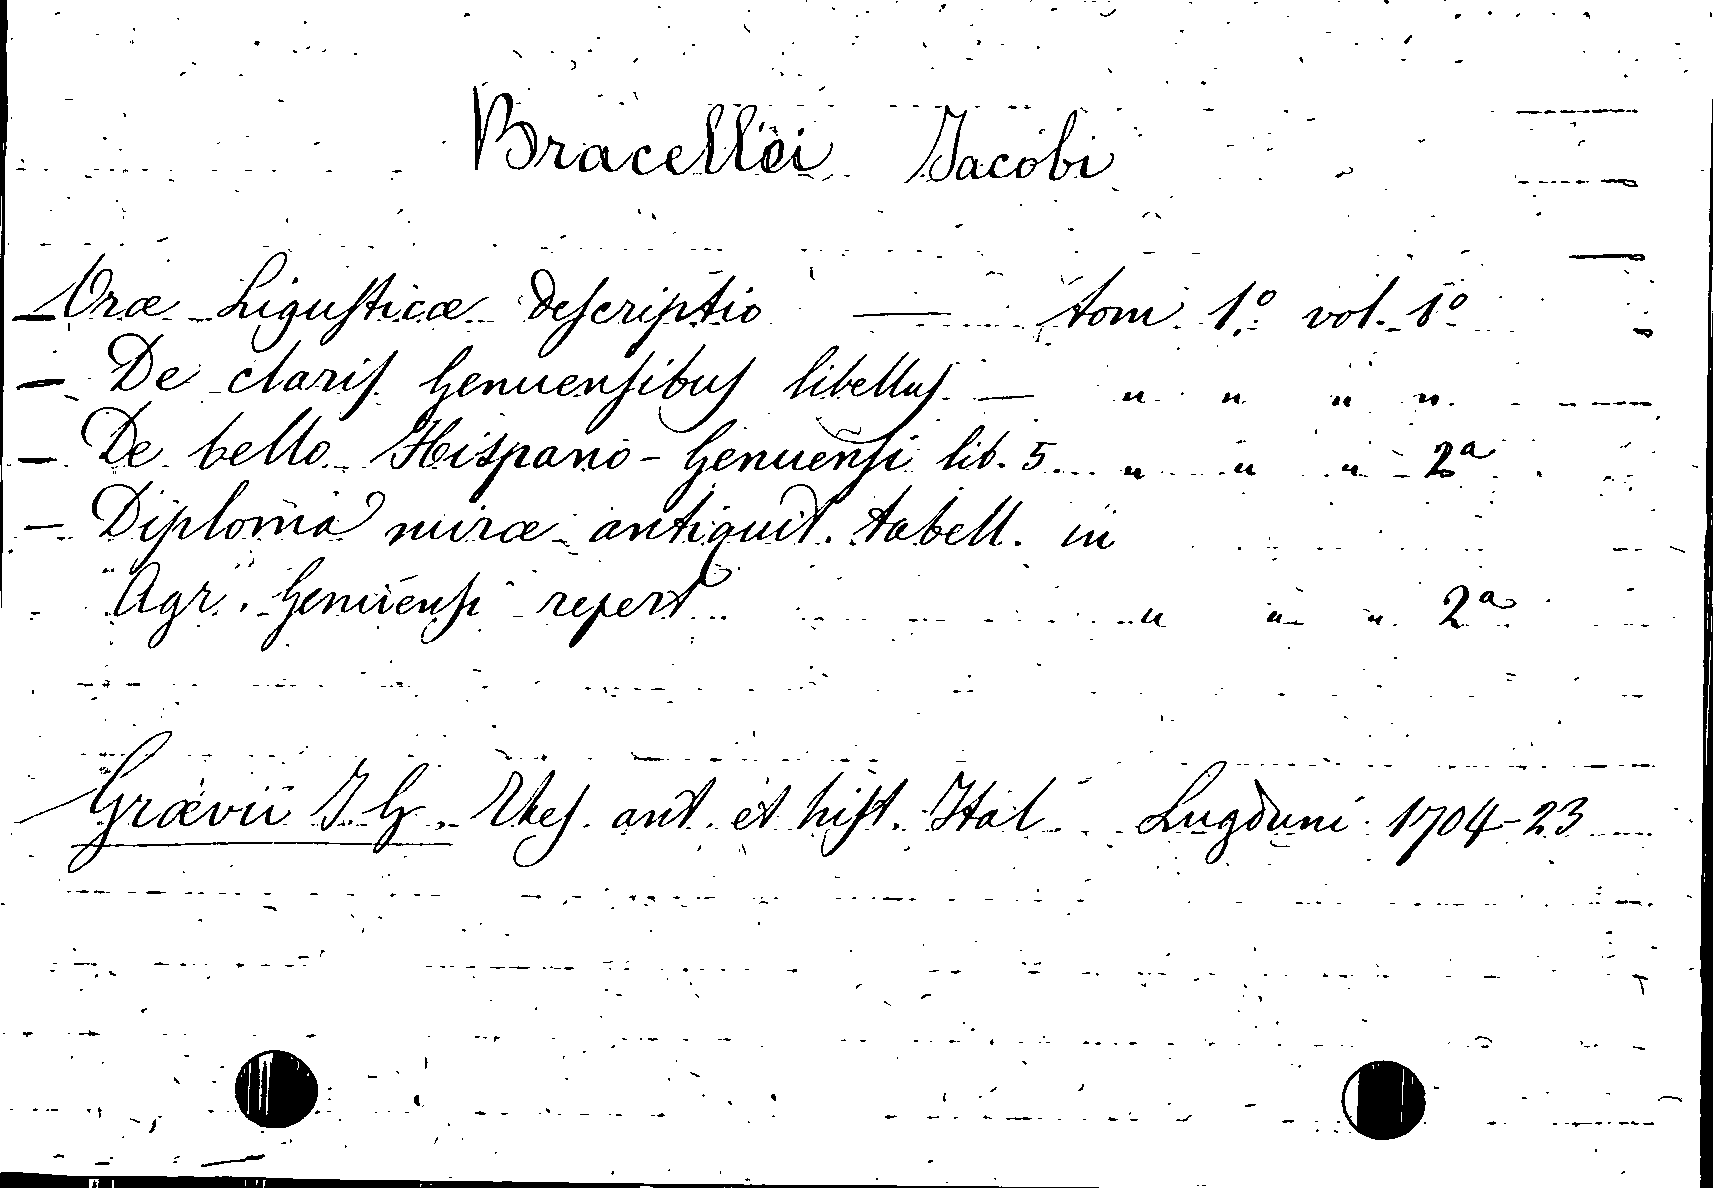 Bracellei Jacobi
— Oræ Ligusticæ Descriptio — tom. 1.º vol. 1º
— De claris Genuensibus libellus — " " " "
— De bello Hispano-Genuensi lib. 5 " " " 2ª
— Diploma miræ antiquit. tabell. in
Agr. Genuensi repert " " " 2ª
Grævii J G. Thes. ant. et hist. Ital Lugduni 1704-23